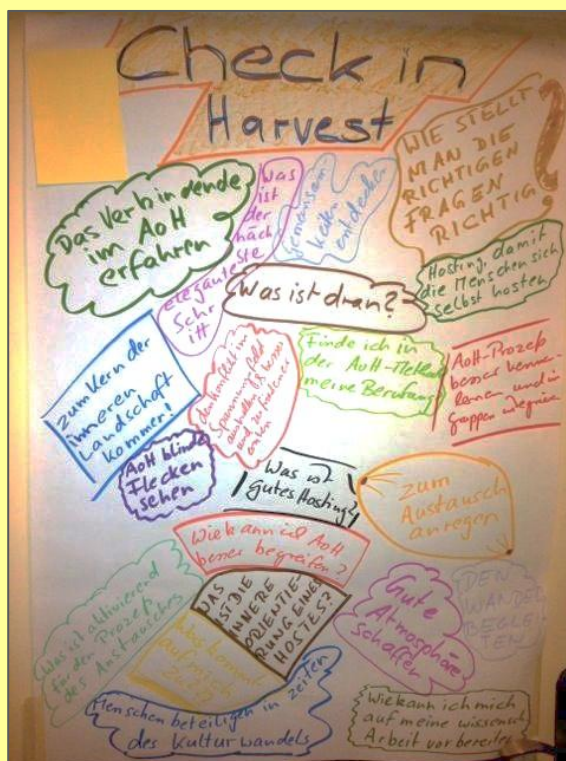 Check in
Harvest
Das Verbindende
im AoH
erfahren
Was
ist
der
näch
steste
eleganteste
Schr
itt
gemeinsam
entdecken
WIE STELLT
MAN DIE
RICHTIGEN
FRAGEN
RICHTIG
Hosting, damit
die Menschen sich
selbst hosten
Was ist dran?
zum Kern der
inneren
Landschaft
kommen!
den Konflikt im
Spannungsfeld
aushalten
und zufriedener
Finde ich in
der AoH-
meine Berufung
AoH-Prozess
besser kennen-
lernen und in
Gruppen
AoH blinde
Flecken
sehen
Was ist
gutes Hosting?
zum
Austausch
anregen
Wie kann ich AoH
besser begreifen?
Was ist aktivierend
für den Prozess
des Austausches
WAS
IST DIE
INNERE
ORIENTIE-
RUNG EINES
HOSTES?
Was kommt
auf mich
zu?
Gute
Atmosphäre
schaffen
DEN
WANDEL
BEGLEI-
TEN
Menschen beteiligen in Zeiten
des Kulturwandels
Wie kann ich mich
auf meine wissensch.
Arbeit vorbereiten